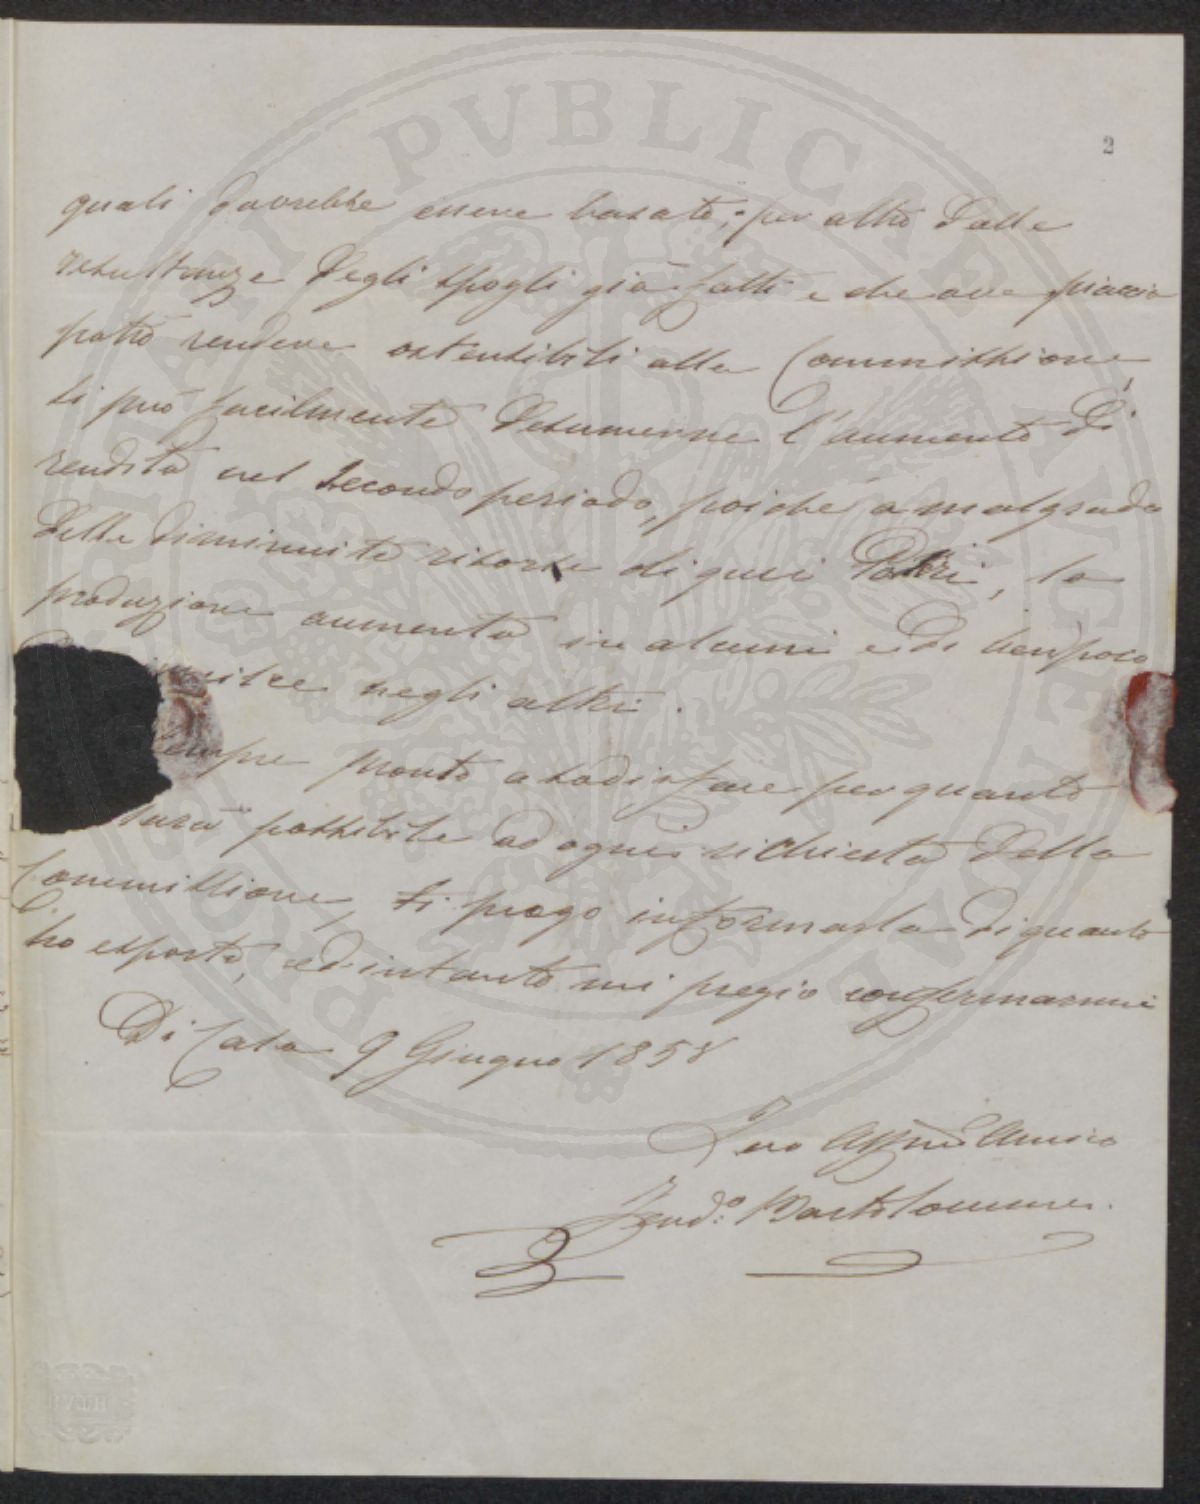 2
quali dovrebbe essere basato; per altro dalle
resultanze degli spogli già fatti e che ove piaccia
potrò rendere ostensibili alla Commissione,
si può facilmente desumerne l'aumento di
rendita nel secondo periodo, poiché a malgrado
delle diminuite risorse di quei Poderi, la
produzione aumentò in alcuni e di ben poco
negli altri.
Sempre pronto a sodisfare per quanto
sarà possibile ad ogni richiesta della
Commissione, ti prego informarla di quanto
ho esposto, ed intanto mi pregio confermarmi
Di Casa 9 Giugno 1858
Tuo Affmo Amico
Ferd.º Bartolommei.